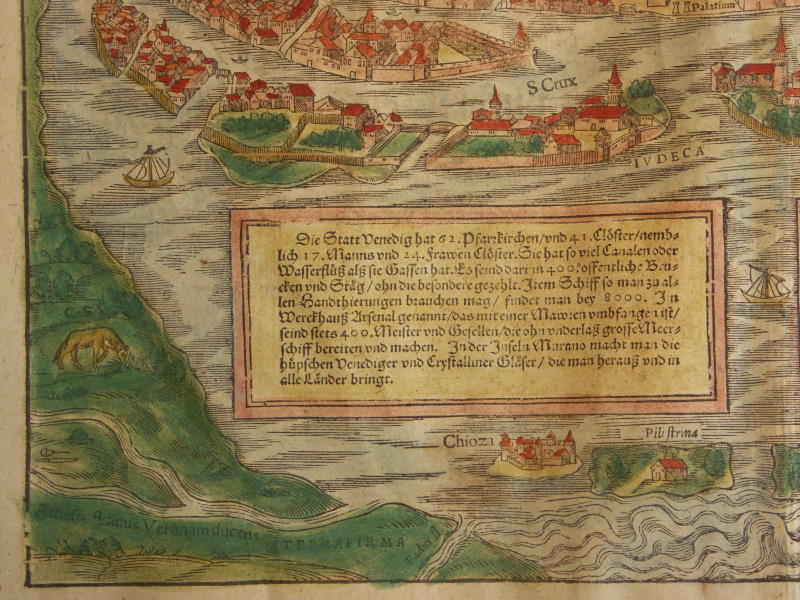 Palatium
S Crux
IVDECA
Die Statt Venedig hat 62. Pfarrkirchen/vnd 41. Clöster/nemb-
lich 17. Manns vnd 24. Frawen Clöster. Sie hat so viel Canalen oder
Wasserflüß alß sie Gassen hat. Es seind darin 400. offentliche Bru-
cken vnd Stäg/ohn die besondere gezehlt. Item Schiff so man zu al-
len Handthierungen brauchen mag/findet man bey 8000. In
Werckhauß Arsenal genannt/das mit einer Mawren vmbfangen ist/
seind stets 400. Meister vnd Gesellen/die ohn vnderlaß grosse Meer-
schiff bereiten vnd machen. In der Inseln Murano macht man die
hüpschen Venediger vnd Crystalliner Gläser/die man herauß vnd in
alle Länder bringt.
C. S.
Chioza
Pilistrina
Veronam ducens
TERRA FIRMA